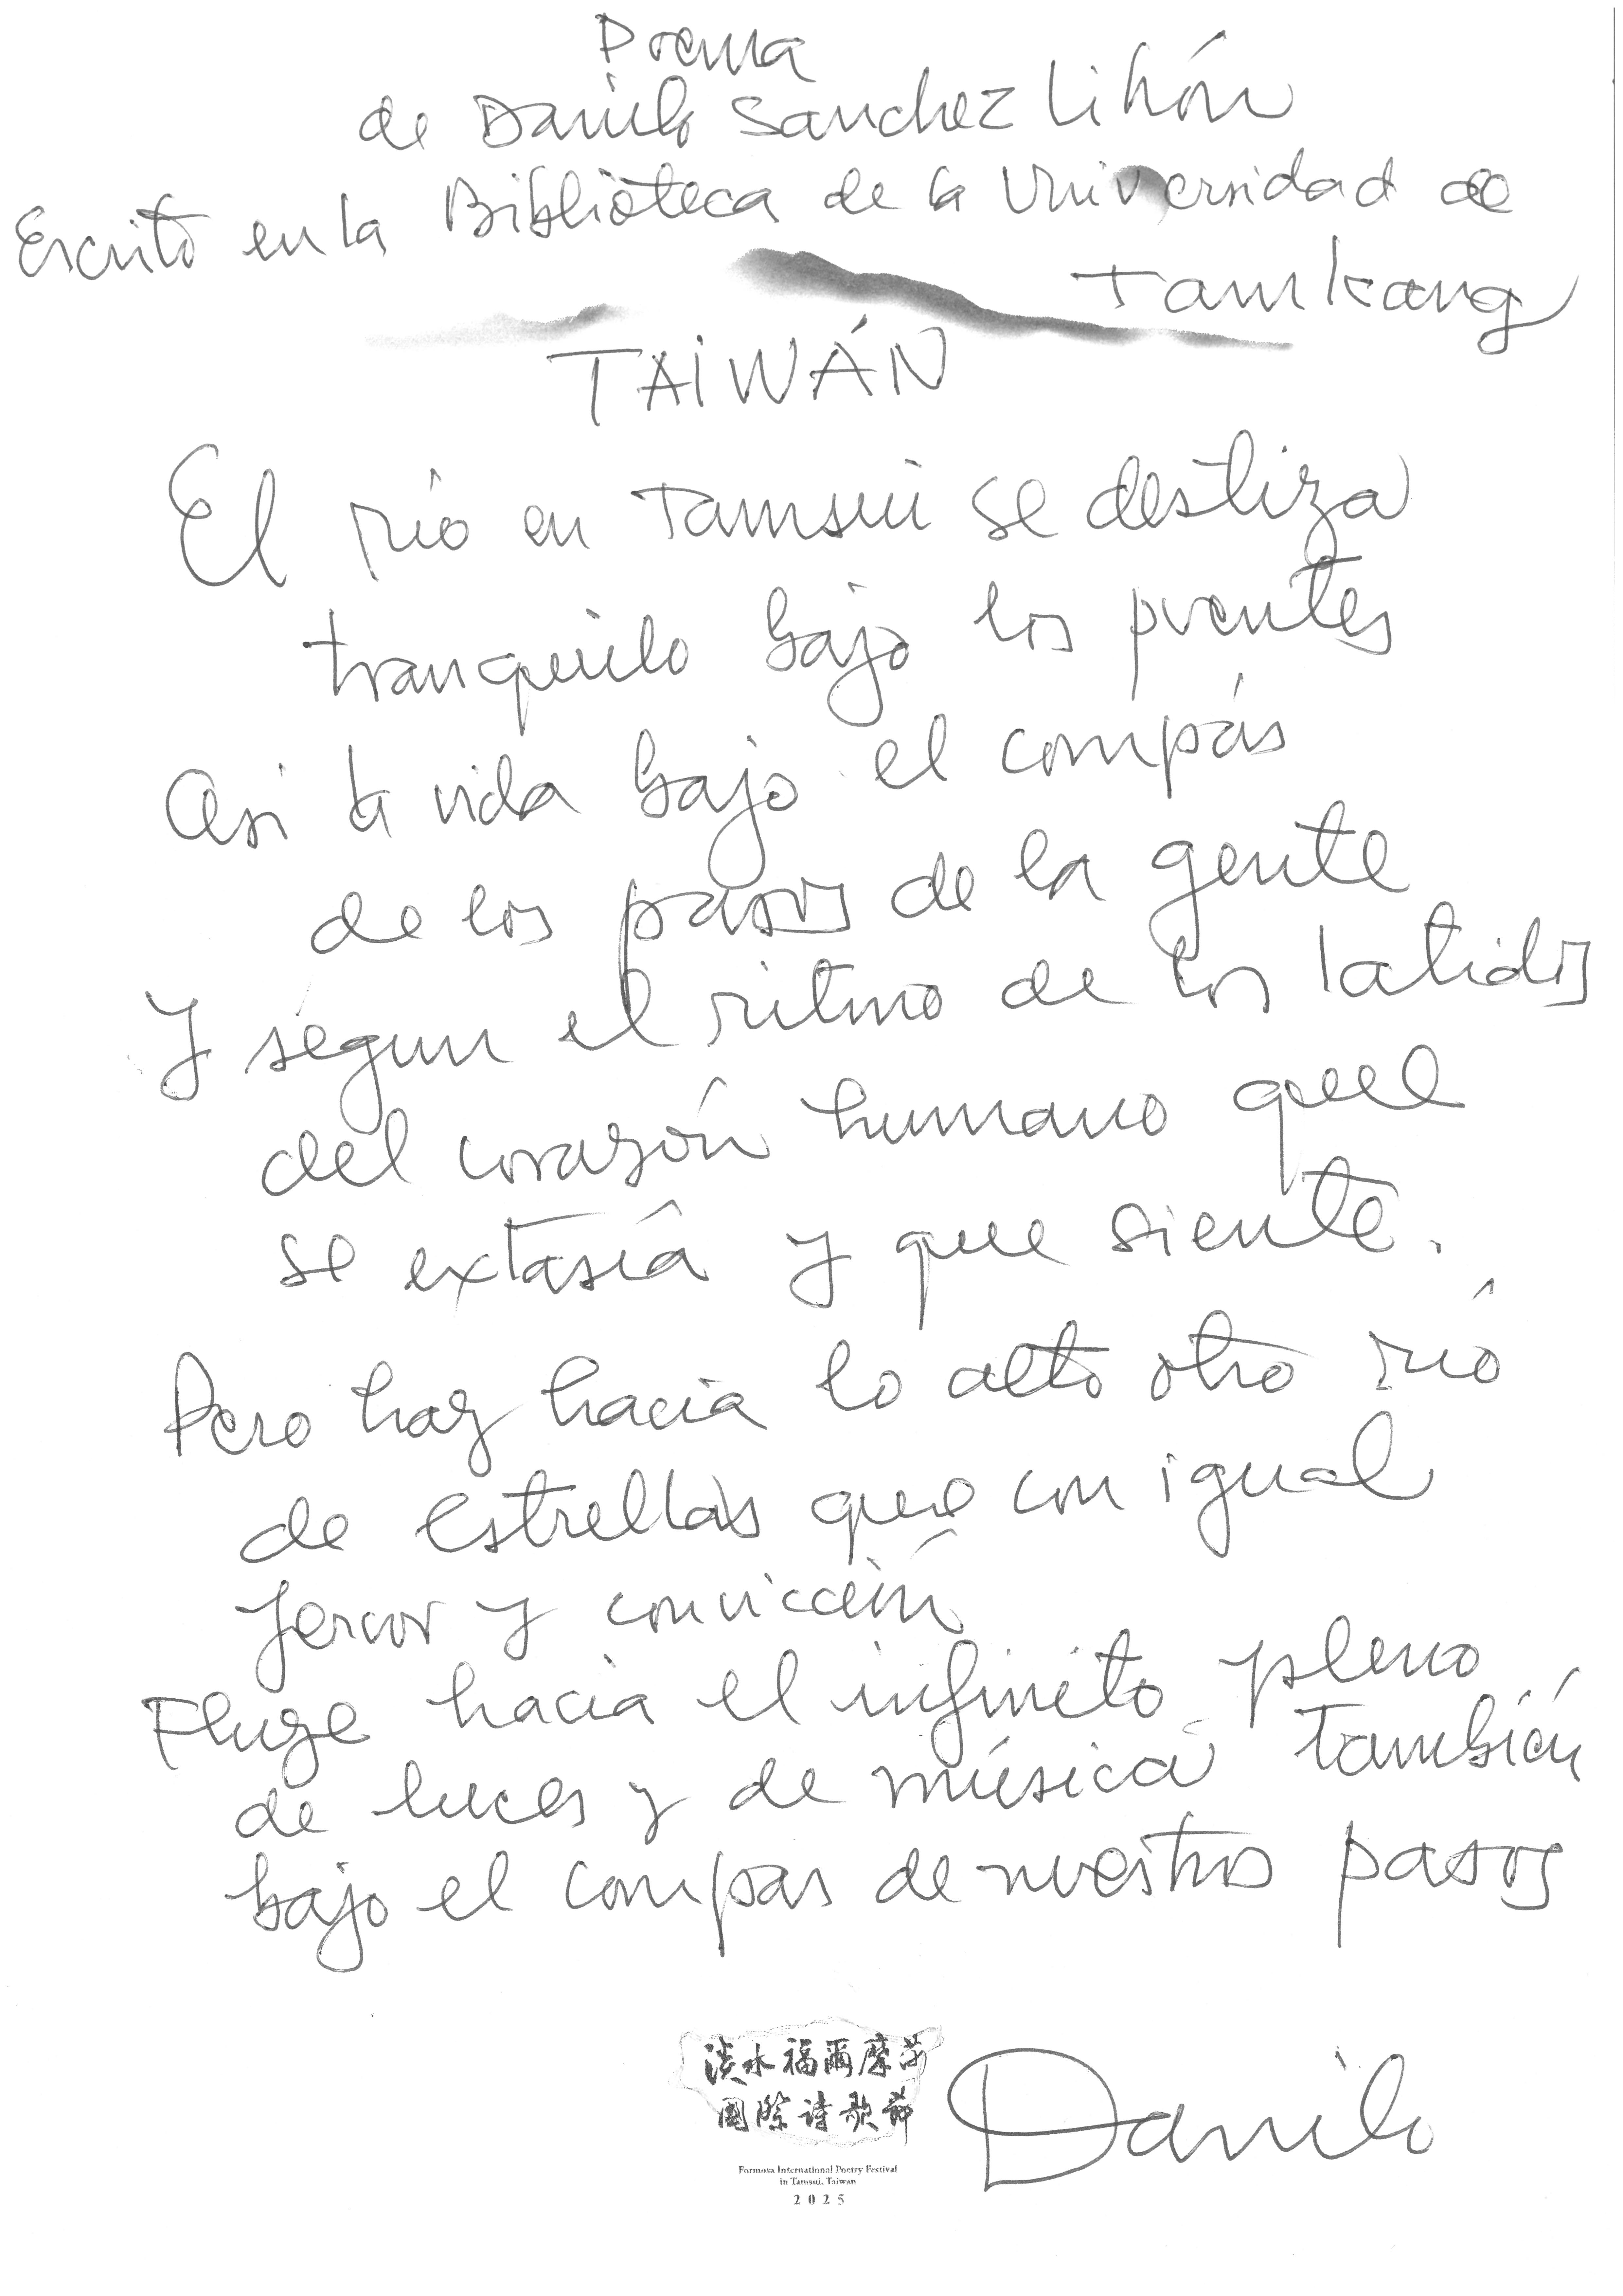 Poema
de Danilo Sánchez Lihón
Escrito en la Biblioteca de la Universidad de
Tamkang
TAIWÁN
El río en Tamsui se desliza
tranquilo bajo los puentes
Así la vida bajo el compás
de los pasos de la gente
Y según el ritmo de los latidos
del corazón humano que
se extasía y que siente.
Pero hay hacia lo alto otro río
de estrellas que con igual
fervor y convicción
Fluye hacia el infinito pleno
de luces y de música también
bajo el compás de nuestros pasos
淡水福爾摩莎
國際詩歌節
Formosa International Poetry Festival
in Tamsui, Taiwan
2025
Danilo